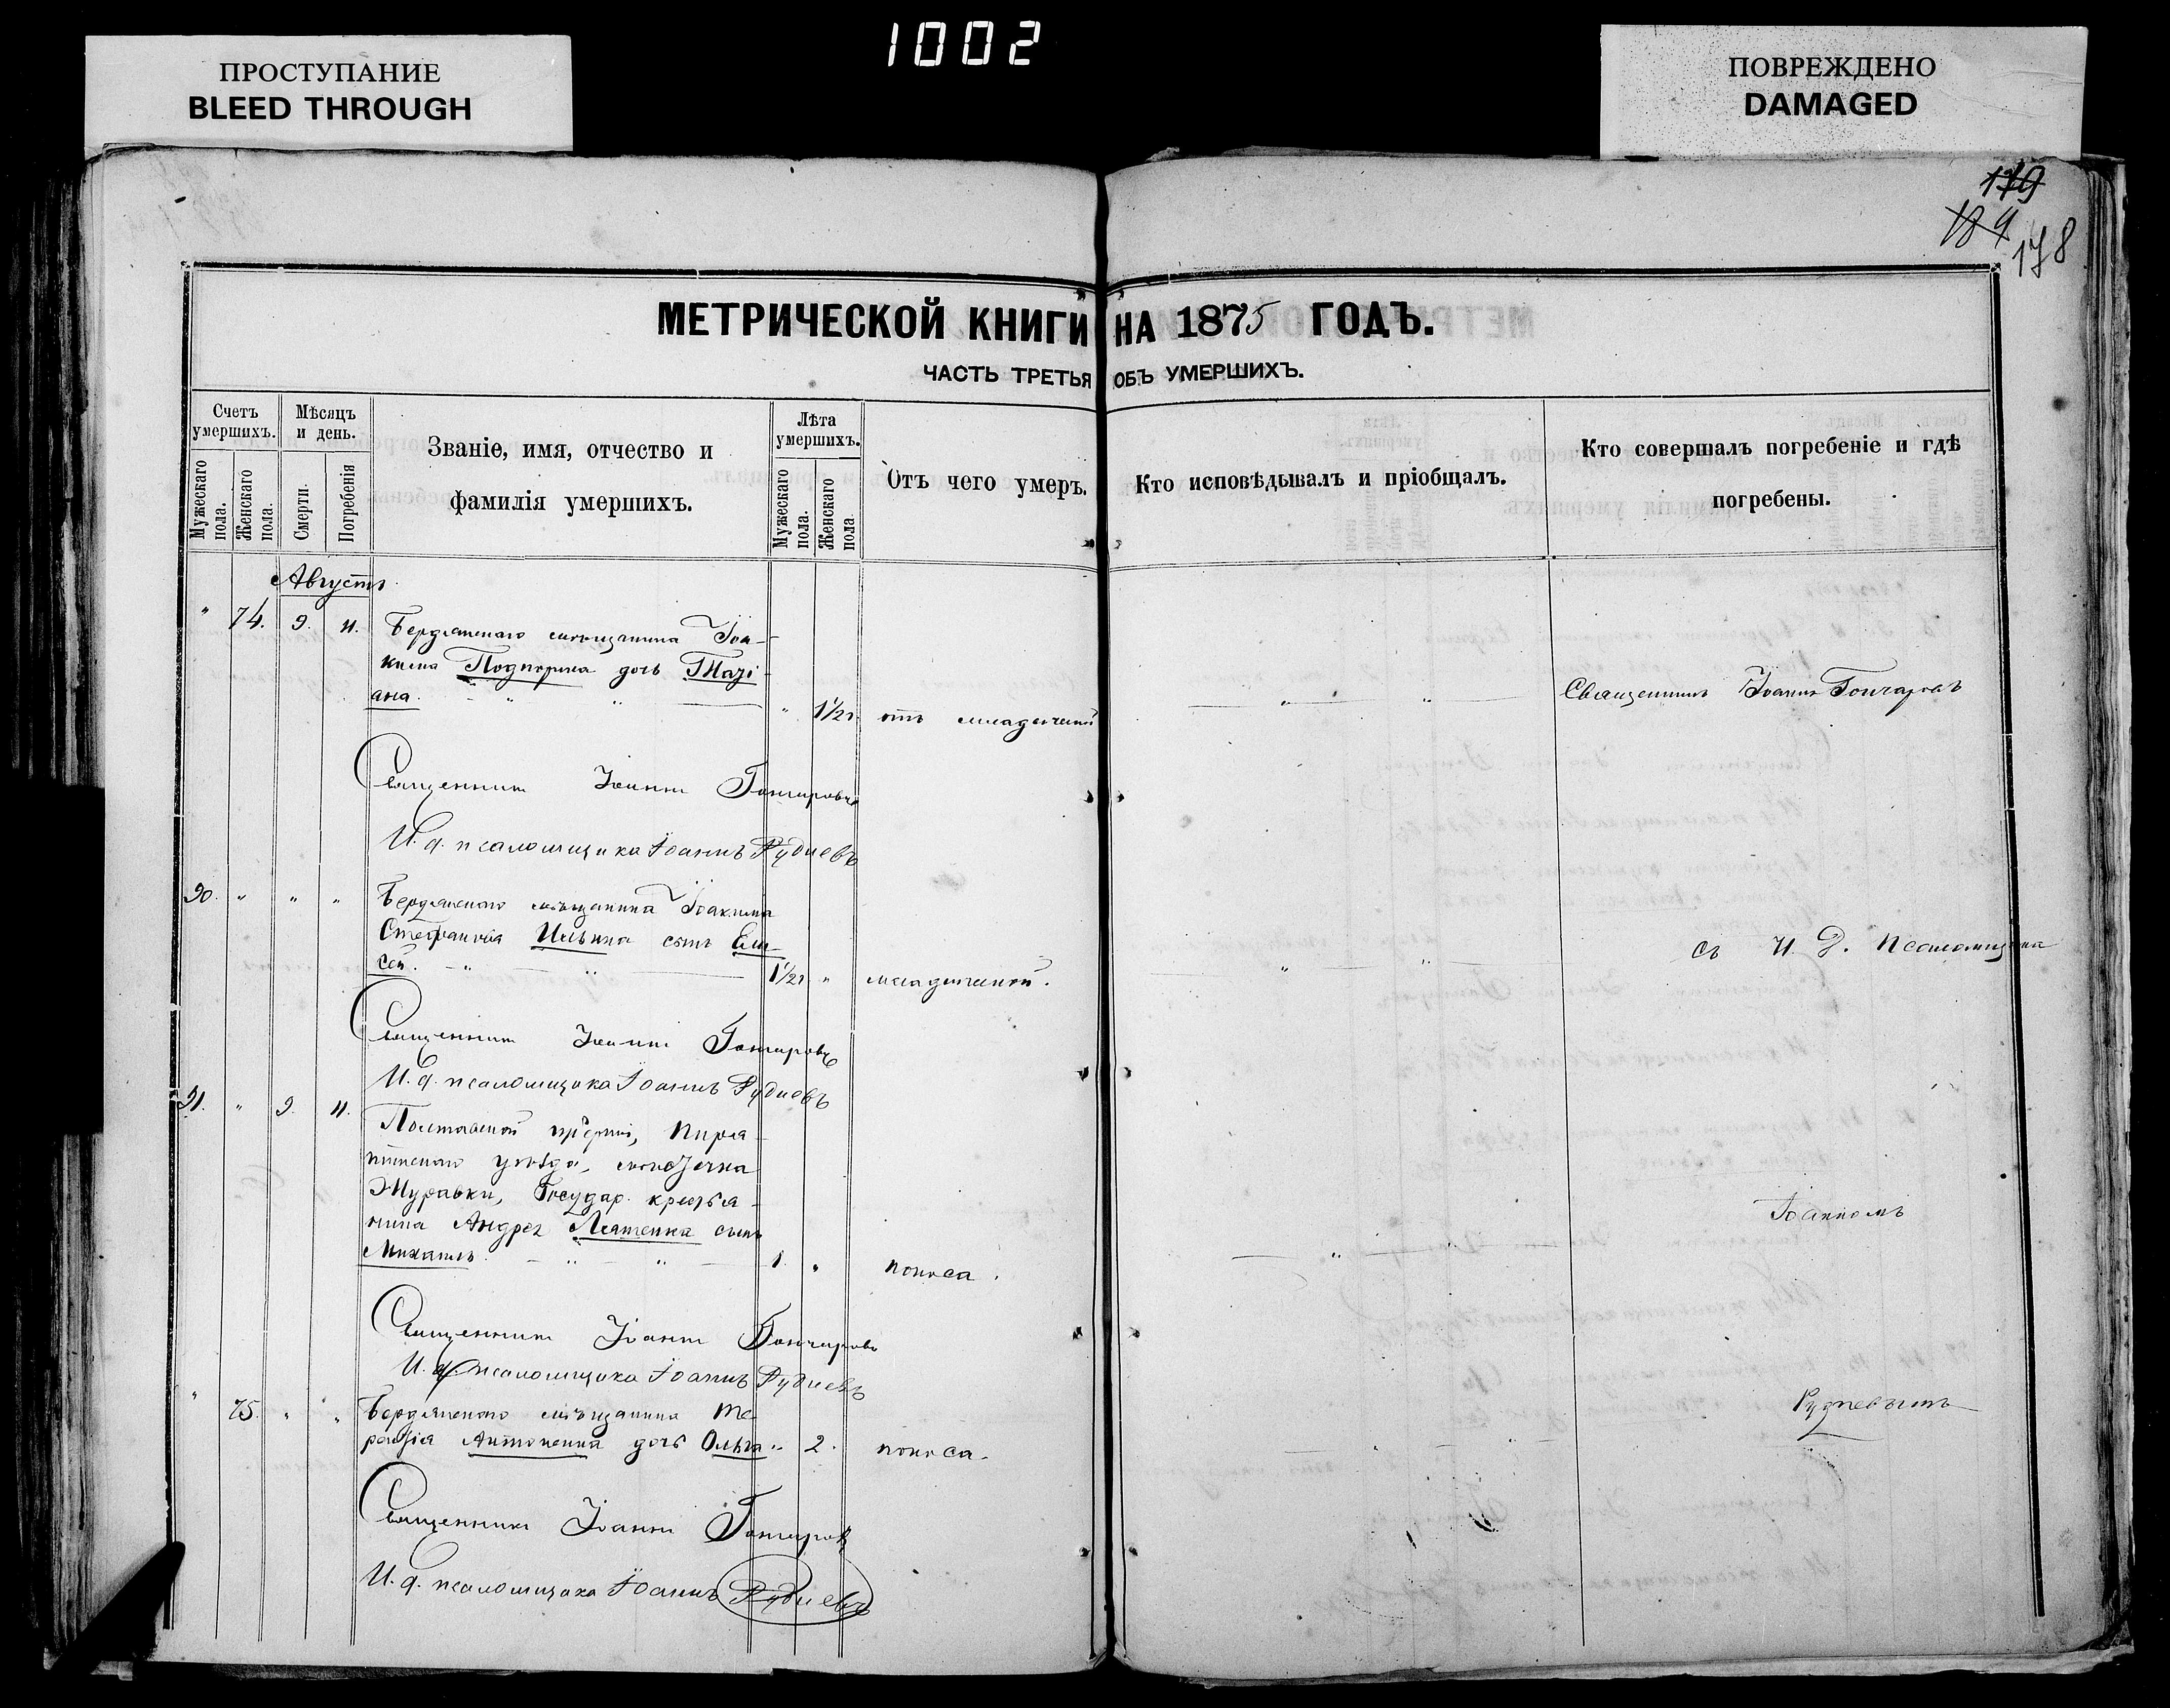 1002
ПРОСТУПАНИЕ
BLEED THROUGH
ПОВРЕЖДЕНО
DAMAGED
179
189
178
МЕТРИЧЕСКОЙ КНИГИ НА 1875 ГОДЪ.
ЧАСТЬ ТРЕТЬЯ ОБЪ УМЕРШИХЪ.
Счетъ умершихъ.
Мужескаго пола.
Женскаго пола.
Мѣсяцъ и день.
Смерти.
Погребенія
Званіе, имя, отчество и
фамилія умершихъ.
Лѣта умершихъ.
Мужескаго пола.
Женскаго пола.
Отъ чего умеръ.
Кто исповѣдывалъ и пріобщалъ.
Кто совершалъ погребеніе и гдѣ
погребены.
Августъ
" 74. 9. 11. Бердянскаго мѣщанина Іоа-
кима дочь Таті-
ана. " " " 1 1/2 г. отъ младенческой " " Священникъ Іоаннъ Гончаровъ
Священникъ Іоаннъ Гончаровъ
И. д. псаломщика Іоаннъ Рудневъ
90. " " " Бердянскаго мѣщанина Іоакима
Стефанова Ильина сынъ Ели-
сей. " " 1 1/2 г. " младенческой. " " съ И. Д. Псаломщика
Священникъ Іоаннъ Гончаровъ
И. д. псаломщика Іоаннъ Рудневъ
91. " 9. 11. Полтавской губерніи, Пиря-
тинскаго уѣзда, мѣстечка
Журавки, Государ. крестья-
нина Андрея сынъ
Михаилъ. " " 1. " поноса. " Іоанномъ
Священникъ Іоаннъ Гончаровъ
И. д. псаломщика Іоаннъ Рудневъ
" 75. " " Бердянскаго мѣщанина Те-
рентія Антоненка дочь Ольга " 2. поноса. " " Рудневымъ
Священникъ Іоаннъ Гончаровъ
И. д. псаломщика Іоаннъ Рудневъ